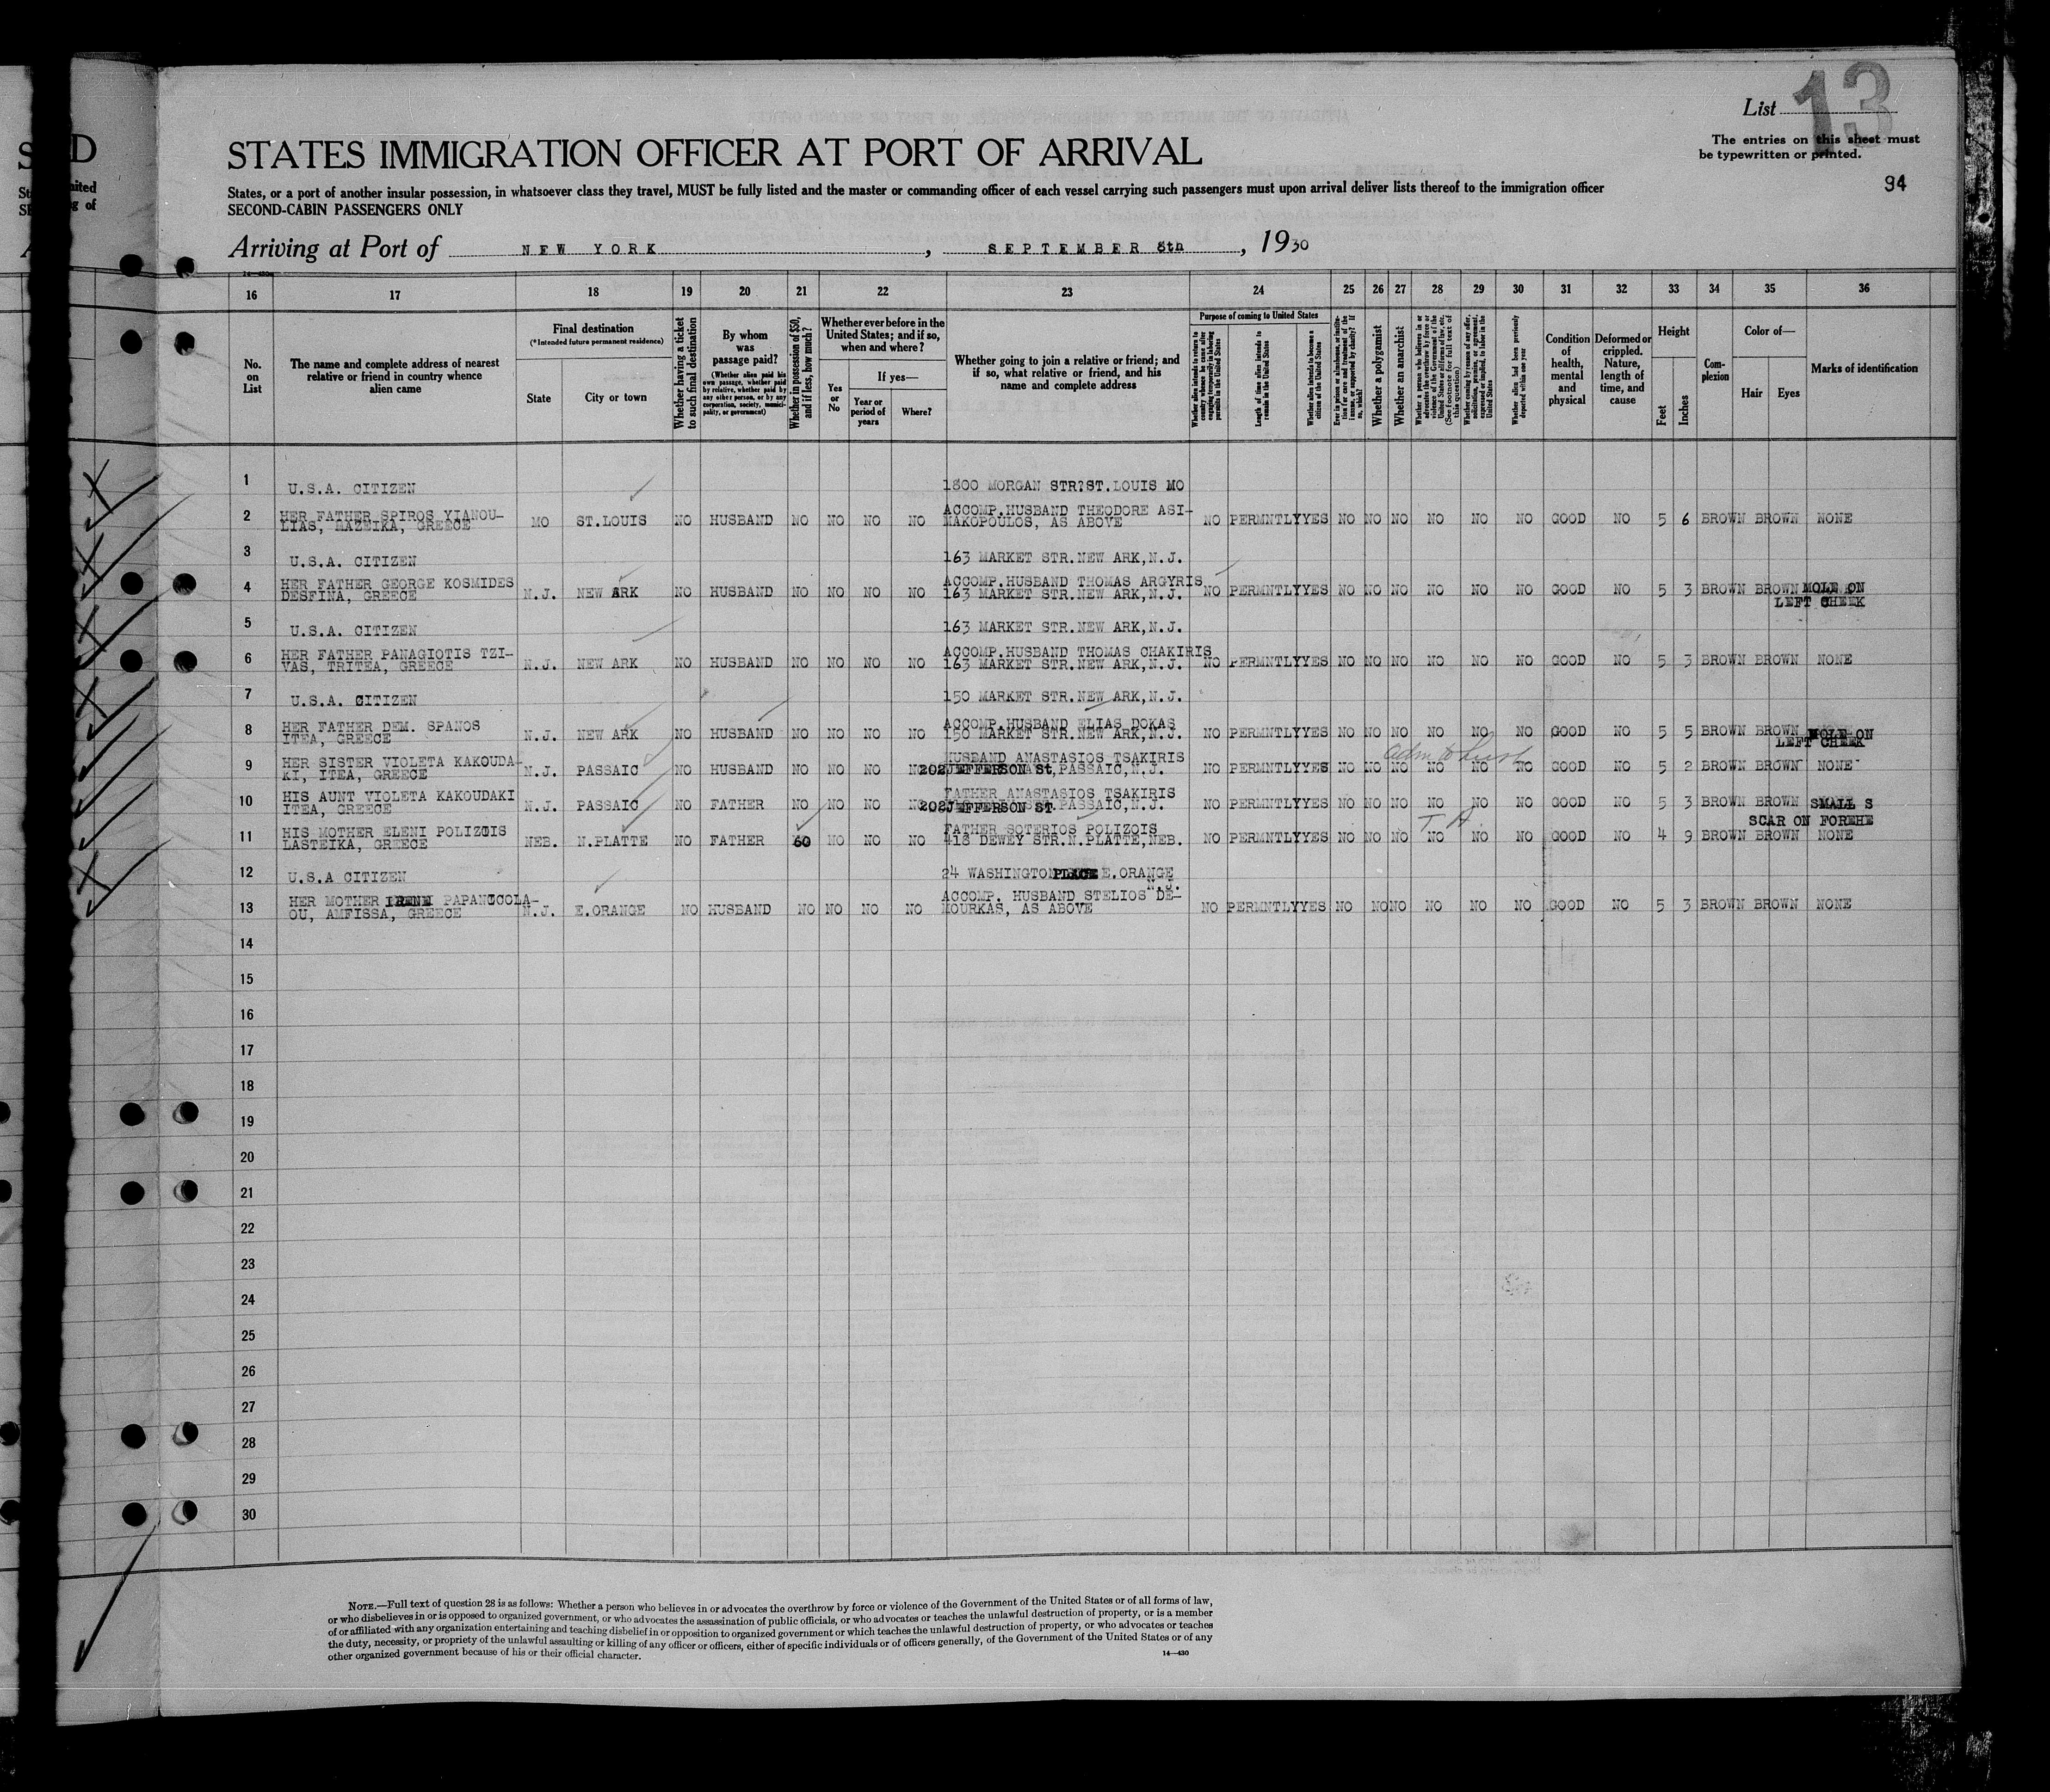 List 13
The entries on this sheet must
be typewritten or printed.
94
STATES IMMIGRATION OFFICER AT PORT OF ARRIVAL
States, or a port of another insular possession, in whatsoever class they travel, MUST be fully listed and the master or commanding officer of each vessel carrying such passengers must upon arrival deliver lists thereof to the immigration officer
SECOND-CABIN PASSENGERS ONLY
Arriving at Port of NEW YORK, SEPTEMBER 8th, 1930
16 17 18 19 20 21 22 23 24 25 26 27 28 29 30 31 32 33 34 35 36
No. on List
The name and complete address of nearest relative or friend in country whence alien came
Final destination
(*Intended future permanent residence)
State
City or town
Whether having a ticket to such final destination
By whom was passage paid?
(Whether alien paid his own passage, whether paid by relative, whether paid by any other person, or by any corporation, society, municipality, or government)
Whether in possession of $50, and if less, how much?
Whether ever before in the United States; and if so, when and where?
Yes or No
If yes—
Year or period of years
Where?
Whether going to join a relative or friend; and if so, what relative or friend, and his name and complete address
Purpose of coming to United States
Length of time alien intends to remain in the United States
Whether alien intends to become a citizen of the United States
Whether a polygamist
Whether an anarchist
Whether alien had been previously deported within one year
Condition of health, mental and physical
Deformed or crippled. Nature, length of time, and cause
Height
Feet
Inches
Complexion
Color of—
Hair
Eyes
Marks of identification
1 U.S.A. CITIZEN 1800 MORGAN STR?ST.LOUIS MO
2 HER FATHER SPIROS YIANOU-
LIAS, MAZEIKA, GREECE MO ST.LOUIS NO HUSBAND NO NO NO NO ACCOMP.HUSBAND THEODORE ASI-
MAKOPOULOS, AS ABOVE NO PERMNTLY YES NO NO NO NO NO NO GOOD NO 5 6 BROWN BROWN NONE
3 U.S.A. CITIZEN 163 MARKET STR.NEW ARK,N.J.
4 HER FATHER GEORGE KOSMIDES
DESFINA, GREECE N.J. NEW ARK NO HUSBAND NO NO NO NO ACCOMP.HUSBAND THOMAS ARGYRIS
163 MARKET STR.NEW ARK,N.J. NO PERMNTLY YES NO NO NO NO NO NO GOOD NO 5 3 BROWN BROWN MOLE ON
LEFT CHEEK
5 U.S.A. CITIZEN 163 MARKET STR.NEW ARK,N.J.
6 HER FATHER PANAGIOTIS TZI-
VAS, TRITEA, GREECE N.J. NEW ARK NO HUSBAND NO NO NO NO ACCOMP.HUSBAND THOMAS CHAKIRIS
163 MARKET STR.NEW ARK,N.J. NO PERMNTLY YES NO NO NO NO NO NO GOOD NO 5 3 BROWN BROWN NONE
7 U.S.A. CITIZEN 150 MARKET STR.NEW ARK,N.J.
8 HER FATHER DEM. SPANOS
ITEA, GREECE N.J. NEW ARK NO HUSBAND NO NO NO NO ACCOMP.HUSBAND ELIAS DOKAS
150 MARKET STR.NEW ARK,N.J. NO PERMNTLY YES NO NO NO NO NO NO GOOD NO 5 5 BROWN BROWN MOLE ON
LEFT CHEEK
9 HER SISTER VIOLETA KAKOUDA-
KI, ITEA, GREECE N.J. PASSAIC NO HUSBAND NO NO NO NO HUSBAND ANASTASIOS TSAKIRIS
202 JEFFERSON St, PASSAIC,N.J. NO PERMNTLY YES NO NO NO NO NO NO GOOD NO 5 2 BROWN BROWN NONE
10 HIS AUNT VIOLETA KAKOUDAKI
ITEA, GREECE N.J. PASSAIC NO FATHER NO NO NO NO FATHER ANASTASIOS TSAKIRIS
202 JEFFERSON ST. PASSAIC,N.J. NO PERMNTLY YES NO NO NO NO NO NO GOOD NO 5 3 BROWN BROWN SMALL S
SCAR ON FOREHE
11 HIS MOTHER ELENI POLIZOIS
LASTEIKA, GREECE NEB. N.PLATTE NO FATHER 60 NO NO NO FATHER SOTERIOS POLIZOIS
418 DEWEY STR.N.PLATTE,NEB. NO PERMNTLY YES NO NO NO NO NO NO GOOD NO 4 9 BROWN BROWN NONE
12 U.S.A CITIZEN 24 WASHINGTON PLACE E.ORANGE
N.J.
13 HER MOTHER IRENI PAPANICOLA-
OU, AMFISSA, GREECE N.J. E.ORANGE NO HUSBAND NO NO NO NO ACCOMP. HUSBAND STELIOS DE-
MOURKAS, AS ABOVE NO PERMNTLY YES NO NO NO NO NO NO GOOD NO 5 3 BROWN BROWN NONE
14
15
16
17
18
19
20
21
22
23
24
25
26
27
28
29
30
NOTE.—Full text of question 28 is as follows: Whether a person who believes in or advocates the overthrow by force or violence of the Government of the United States or of all forms of law,
or who disbelieves in or is opposed to organized government, or who advocates the assassination of public officials, or who advocates or teaches the unlawful destruction of property, or is a member
of or affiliated with any organization entertaining and teaching disbelief in or opposition to organized government or which teaches the unlawful destruction of property, or who advocates or teaches
the duty, necessity, or propriety of the unlawful assaulting or killing of any officer or officers, either of specific individuals or of officers generally, of the Government of the United States or of any
other organized government because of his or their official character.
14—430